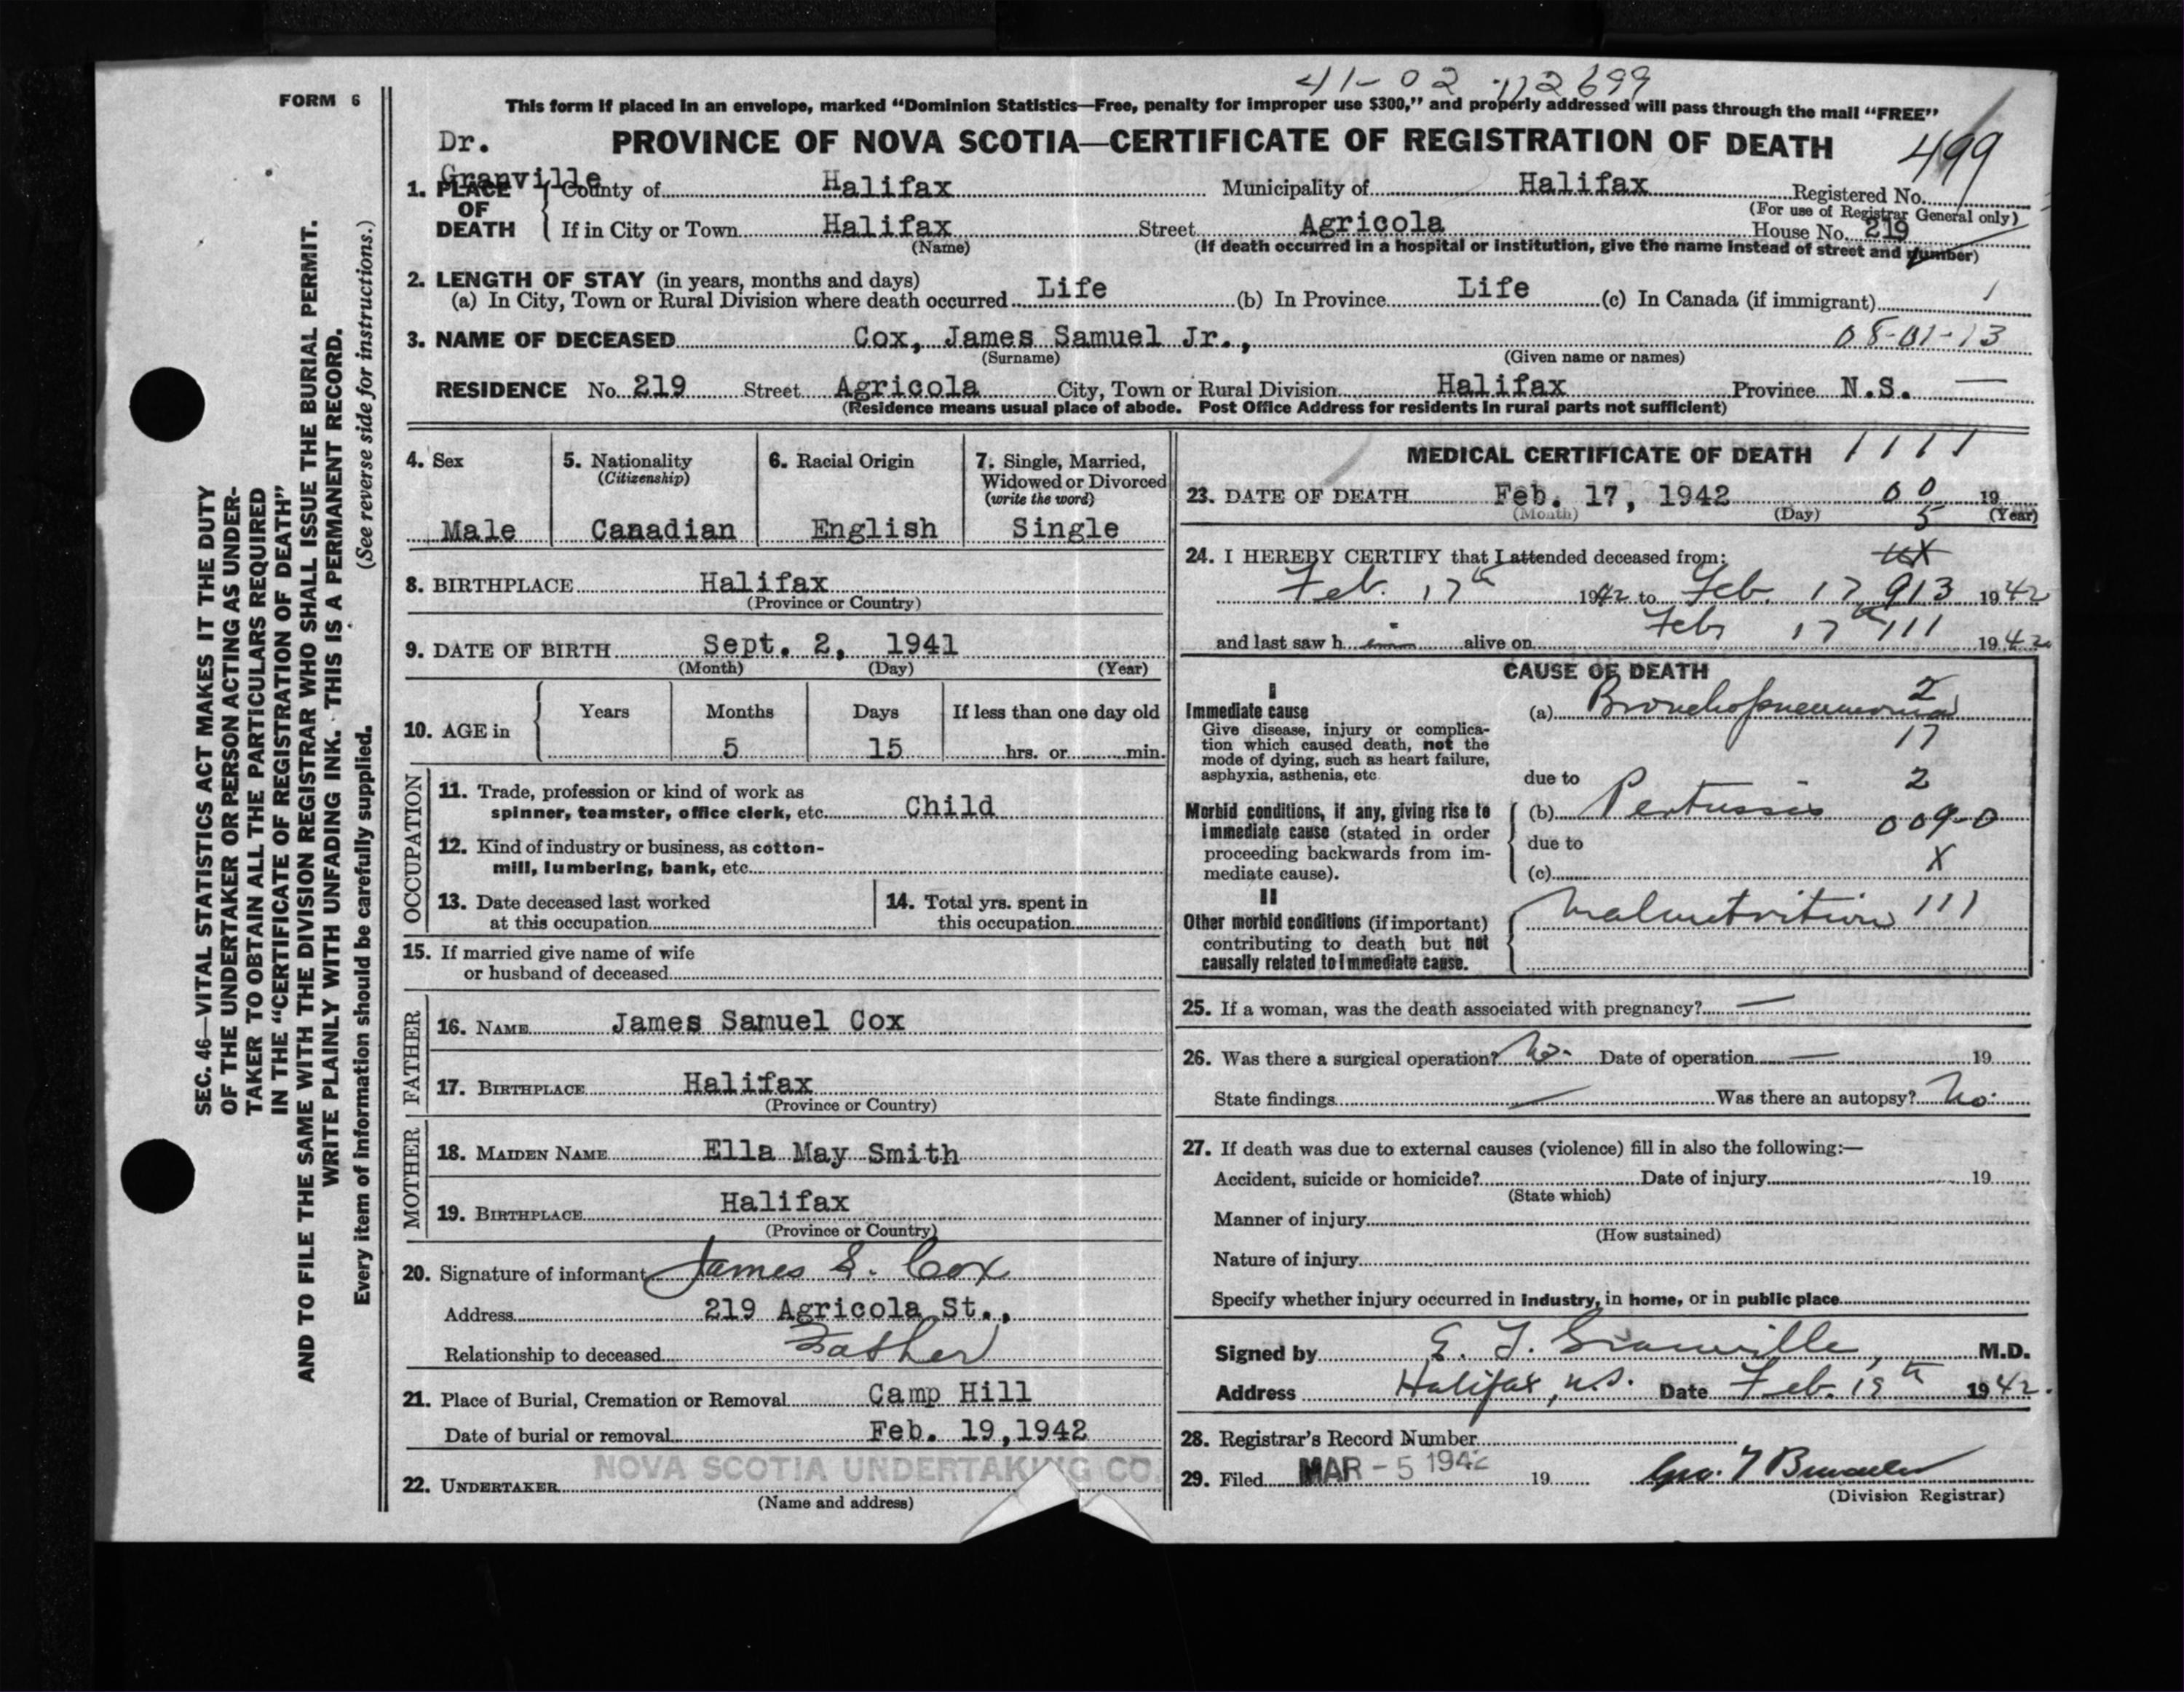 FORM 6
41-02 112699
This form if placed in an envelope, marked “Dominion Statistics—Free, penalty for improper use $300,” and properly addressed will pass through the mail “FREE”
Dr. Granville
PROVINCE OF NOVA SCOTIA—CERTIFICATE OF REGISTRATION OF DEATH
499
1. PLACE OF DEATH
County of Halifax Municipality of Halifax Registered No.
(For use of Registrar General only)
If in City or Town Halifax Street Agricola House No. 219
(Name) (If death occurred in a hospital or institution, give the name instead of street and number)
2. LENGTH OF STAY (in years, months and days)
(a) In City, Town or Rural Division where death occurred Life (b) In Province Life (c) In Canada (if immigrant) 1
3. NAME OF DECEASED Cox, James Samuel Jr., 08-01-13
(Surname) (Given name or names)
RESIDENCE No. 219 Street Agricola City, Town or Rural Division Halifax Province N.S. —
(Residence means usual place of abode. Post Office Address for residents in rural parts not sufficient)
4. Sex
Male
5. Nationality
(Citizenship)
Canadian
6. Racial Origin
English
7. Single, Married,
Widowed or Divorced
(write the word)
Single
8. BIRTHPLACE Halifax
(Province or Country)
9. DATE OF BIRTH Sept. 2, 1941
(Month) (Day) (Year)
10. AGE in
Years Months Days If less than one day old
5 15 hrs. or min.
OCCUPATION
11. Trade, profession or kind of work as
spinner, teamster, office clerk, etc. Child
12. Kind of industry or business, as cotton-
mill, lumbering, bank, etc.
13. Date deceased last worked
at this occupation
14. Total yrs. spent in
this occupation
15. If married give name of wife
or husband of deceased
FATHER
16. NAME James Samuel Cox
17. BIRTHPLACE Halifax
(Province or Country)
MOTHER
18. MAIDEN NAME Ella May Smith
19. BIRTHPLACE Halifax
(Province or Country)
20. Signature of informant James S. Cox
Address 219 Agricola St.,
Relationship to deceased Father
21. Place of Burial, Cremation or Removal Camp Hill
Date of burial or removal Feb. 19, 1942
NOVA SCOTIA UNDERTAKING CO.
22. UNDERTAKER
(Name and address)
MEDICAL CERTIFICATE OF DEATH 1111
23. DATE OF DEATH Feb. 17, 1942 00 19
(Month) (Day) 5 (Year)
24. I HEREBY CERTIFY that I attended deceased from:
Feb. 17th 1942 to Feb. 17 913 1942
and last saw h im alive on Feb 17th 111 1942
CAUSE OF DEATH
I
Immediate cause
Give disease, injury or complica-
tion which caused death, not the
mode of dying, such as heart failure,
asphyxia, asthenia, etc.
(a) Bronchopneumonia 2
17
due to 2
Morbid conditions, if any, giving rise to
immediate cause (stated in order
proceeding backwards from im-
mediate cause).
(b) Pertussis 009-0
due to X
(c)
II
Other morbid conditions (if important)
contributing to death but not
causally related to immediate cause.
Malnutrition 111
25. If a woman, was the death associated with pregnancy? —
26. Was there a surgical operation? No. Date of operation — 19
State findings — Was there an autopsy? No.
27. If death was due to external causes (violence) fill in also the following:—
Accident, suicide or homicide? Date of injury 19
(State which)
Manner of injury
(How sustained)
Nature of injury
Specify whether injury occurred in industry, in home, or in public place
Signed by E. F. Granville, M.D.
Address Halifax, N.S. Date Feb. 19th 1942.
28. Registrar's Record Number
29. Filed MAR - 5 1942 19
(Division Registrar)
SEC. 46—VITAL STATISTICS ACT MAKES IT THE DUTY
OF THE UNDERTAKER OR PERSON ACTING AS UNDER-
TAKER TO OBTAIN ALL THE PARTICULARS REQUIRED
IN THE “CERTIFICATE OF REGISTRATION OF DEATH”
AND TO FILE THE SAME WITH THE DIVISION REGISTRAR WHO SHALL ISSUE THE BURIAL PERMIT.
WRITE PLAINLY WITH UNFADING INK. THIS IS A PERMANENT RECORD.
Every item of information should be carefully supplied. (See reverse side for instructions.)